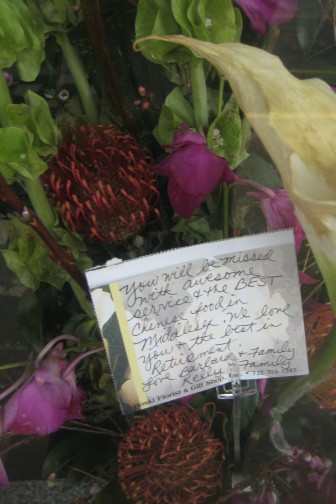 You will be missed
with awesome
service & the BEST
Chinese food in
Middlesex. We love
you & the best in
Retirement.
Love Barbara & Family
Kelly Family
Florist & Gift Shop